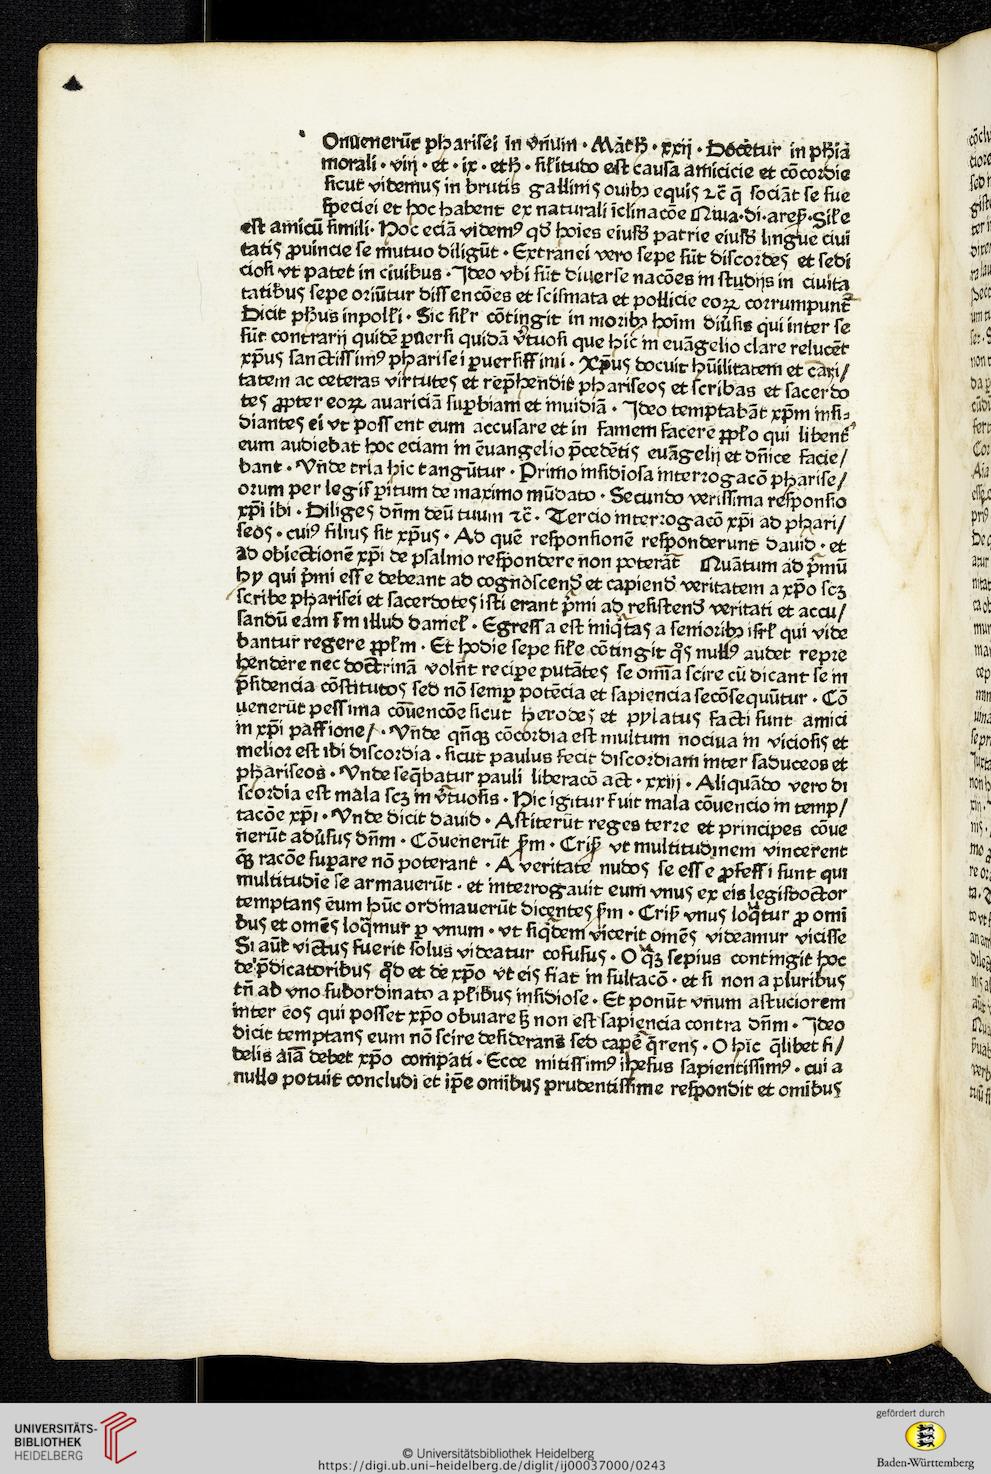 Onuenerūt pharisei in vnum · Math̄ · xxij · Docetur in ph̄ia
morali · viij · et · ix · eth̄ · sil'itudo est causa amicicie et cōcordie
sicut videmus in brutis gallinis ouibꝫ equis ⁊c̄ q̄ sociāt se sue
speciei et hoc habent ex naturali īclinacōe Nota · di · areꝰ · Sil'e
est amicū simili · Hoc eciā videmꝰ qd' hoies eiusd' patrie eiusd' lingue ciui
tatis ꝓuincie se mutuo diligūt · Extranei vero sepe sūt discordes et sedi
ciosi vt patet in ciuibus · Ideo vbi sūt diuerse nacōes in studijs in ciuita
tatibus sepe oriūtur dissencōes et scismata et pollicie eoꝝ corrumpunt̄
Dicit ph̄us in poll'i · Sic sil'r cōtingit in moribꝫ hoīm diu'sis qui inter se
sūt contrarij quidē ꝑuersi quidā v'tuosi que hic in euāngelio clare relucēt
xp̄us sanctissimꝰ pharisei ꝑuersissimi · Xp̄us docuit hūilitatem et cari/
tatem ac ceteras virtutes et rep̄hendit phariseos et scribas et sacerdo
tes ꝓpter eoꝝ auariciā suꝑbiam et inuidiā · Ideo temptabāt xp̄m insi-
diantes ei vt possent eum accusare et in famem facere ꝓpl'o qui libent'
eum audiebat hoc eciam in ēuangelio p̄cedētis euāgelij et dn̄ice facie/
bant · Vn̄de tria hic tangūtur · Primo insidiosa interrogacō pharise/
orum per legis ꝑitum de maximo mādato · Secundo verissima responsio
xp̄i ibi · Diliges dn̄m deū tuum ⁊c̄ · Tercio interrogacō xp̄i ad phari/
seos · cuiꝰ filius sit xp̄us · Ad quē responsionē responderunt dauid · et
ad obiectionē xp̄i de psalmo respondere non poterāt Quātum ad p'mū
hy qui p'mi esse debeant ad cognoscend' et capiend' veritatem a xp̄o scꝫ
scribe pharisei et sacerdotes isti erant p'mi ad resistend' veritati et accu/
sandū eam s'm illud daniel' · Egressa est iniq'tas a senioribꝫ isrl' qui vide
bantur regere ꝓpl'm · Et hodie sepe sil'e cōtingit q̄s nullꝰ audet repre
hendere nec doctrinā volūt recipe putātes se omīa scire cū dicant se in
p̄sidencia cōstitutos sed nō semꝑ potēcia et sapiencia secōsequūtur · Cō
uenerūt pessima cōuencōe sicut herodes et pylatus facti sunt amici
in xp̄i passione/ · Vn̄de qn̄qꝫ cōcordia est multum nociua in viciosis et
melior est ibi discordia · sicut paulus fecit discordiam inter saduceos et
phariseos · Vnde seq̄batur pauli liberacō act · xxiij · Aliquādo vero di
scordia est mala scꝫ in v'tuosis · Hic igitur fuit mala cōuencio in temp/
tacōe xp̄i · Vnde dicit dauid · Astiterūt reges terre et principes cōue
nerūt adu'sus dn̄m · Cōuenerūt s'm · Cris' vt multitudinem vincerent
qꝫ racōe suꝑare nō poterant · A veritate nudos se esse ꝓfessi sunt qui
multitudīe se armauerūt · et interrogauit eum vnus ex eis legisdoctor
temptans ēum hūc ordinauerūt dicentes s'm · Cris' vnus loq̄tur ꝓ omī
bus et omēs loq̄mur ꝑ vnum · vt siq̄dem vicerit omēs videamur vicisse
Si aūt victus fuerit solus videatur cōfusus · O q̄ꝫ sepius contingit hoc
de p̄dicatoribus q̄d et de xp̄o vt eis fiat insultacō · et si non a pluribus
tn̄ ab vno subordinato a pl'ibus insidiose · Et ponūt vnum astuciorem
inter eos qui posset xp̄o obuiare sꝫ non est sapiencia contra dn̄m · Ideo
dicit temptans eum nō scire desiderans sed capē q̄rens · O hīc q̄libet fi/
delis aīa debet xp̄o compati · Ecce mitissimꝰ ihesus sapientissimꝰ · cui a
nullo potuit concludi et ip̄e omībus prudentissime respondit et omībus
UNIVERSITÄTS-
BIBLIOTHEK
HEIDELBERG
© Universitätsbibliothek Heidelberg
https://digi.ub.uni-heidelberg.de/diglit/ij00037000/0243
gefördert durch
Baden-Württemberg